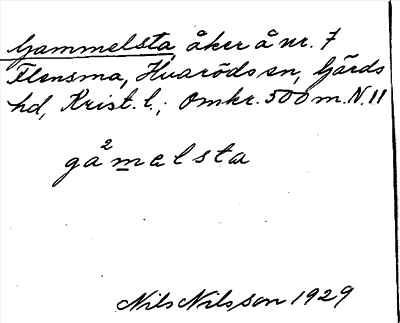 Gammelsta, åker å nr. 7
Flensma, Hvaröds sn, Gärds
hd, Krist. l.; Omkr. 500 m. N. 11
gå²m̲alsta
Nils Nilsson 1929